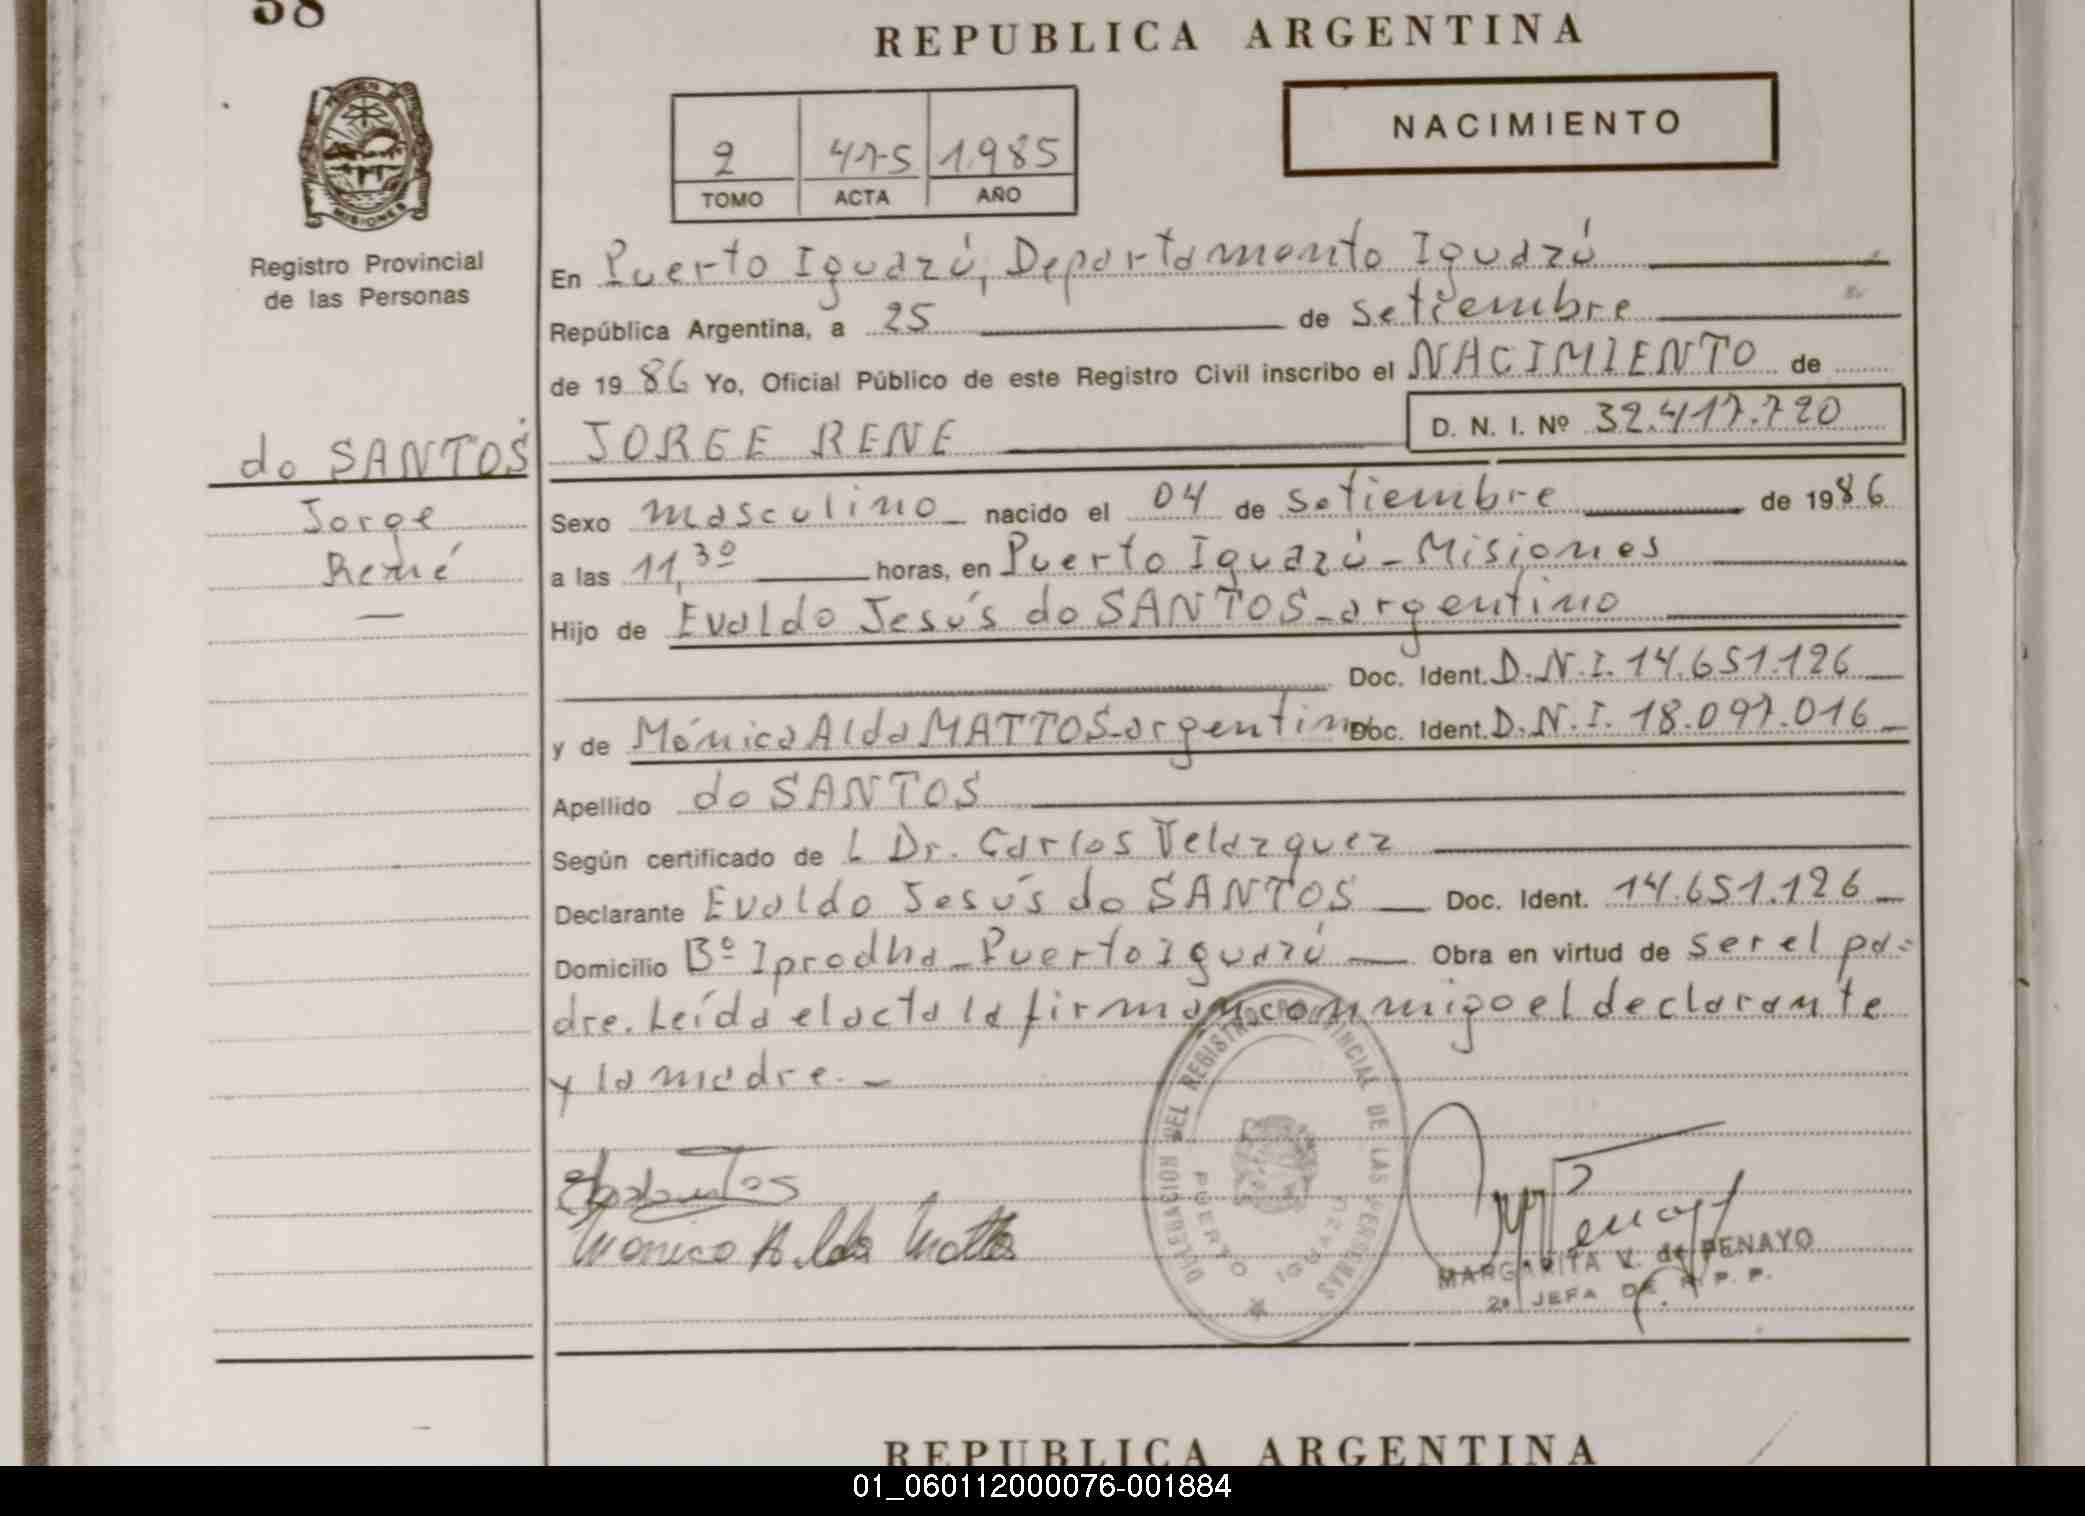 58
REPUBLICA ARGENTINA
2 475 1.985
TOMO ACTA AÑO
NACIMIENTO
MISIONES
Registro Provincial
de las Personas
En Puerto Iguazú, Departamento Iguazú
República Argentina, a 25 de setiembre
de 1986 Yo, Oficial Público de este Registro Civil inscribo el NACIMIENTO de
do SANTOS
Jorge
René
JORGE RENE D. N. I. Nº 32.417.720
Sexo masculino nacido el 04 de setiembre de 1986
a las 11,30 horas, en Puerto Iguazú - Misiones
Hijo de Evaldo Jesús do SANTOS - argentino
Doc. Ident. D.N.I. 14.651.126
y de Mónica Alda MATTOS - argentina Doc. Ident. D.N.I. 18.097.016
Apellido do SANTOS
Según certificado de L Dr. Carlos Velazquez
Declarante Evaldo Jesús do SANTOS Doc. Ident. 14.651.126
Domicilio Bº Iprodha - Puerto Iguazú Obra en virtud de ser el pa-
dre. Leída el acta la firman conmigo el declarante
y la madre. -
DELEGACION DEL REGISTRO PROVINCIAL DE LAS PERSONAS
PUERTO IGUAZU
Monica Alda Mattos
MARGARITA V. de PENAYO
2a JEFA DE R. P. P.
REPUBLICA ARGENTINA
01_060112000076-001884